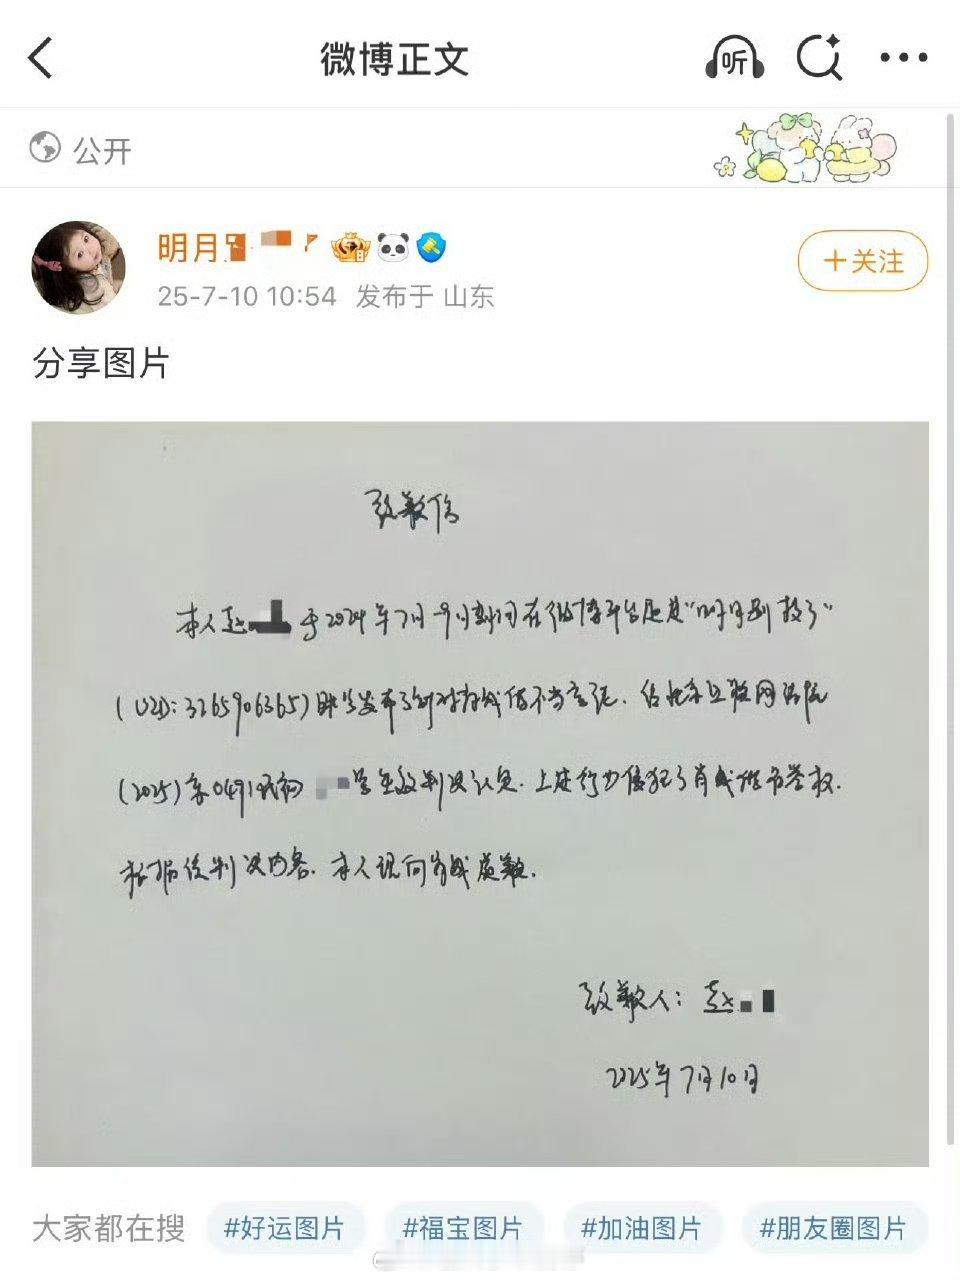 微博正文
听
公开
明月
25-7-10 10:54 发布于 山东
+关注
分享图片
致歉信
本人赵 于2024年7月-9月期间在微博平台通过"明月别 了"
(UID: 3265906365)账号发布了针对肖战的不当言论。经北京互联网法院
(2025)京0491民初 号生效判决认定,上述行为侵犯了肖战的名誉权.
根据该判决内容.本人现向肖战道歉.
致歉人:赵
2025年7月10日
大家都在搜 #好运图片 #福宝图片 #加油图片 #朋友圈图片